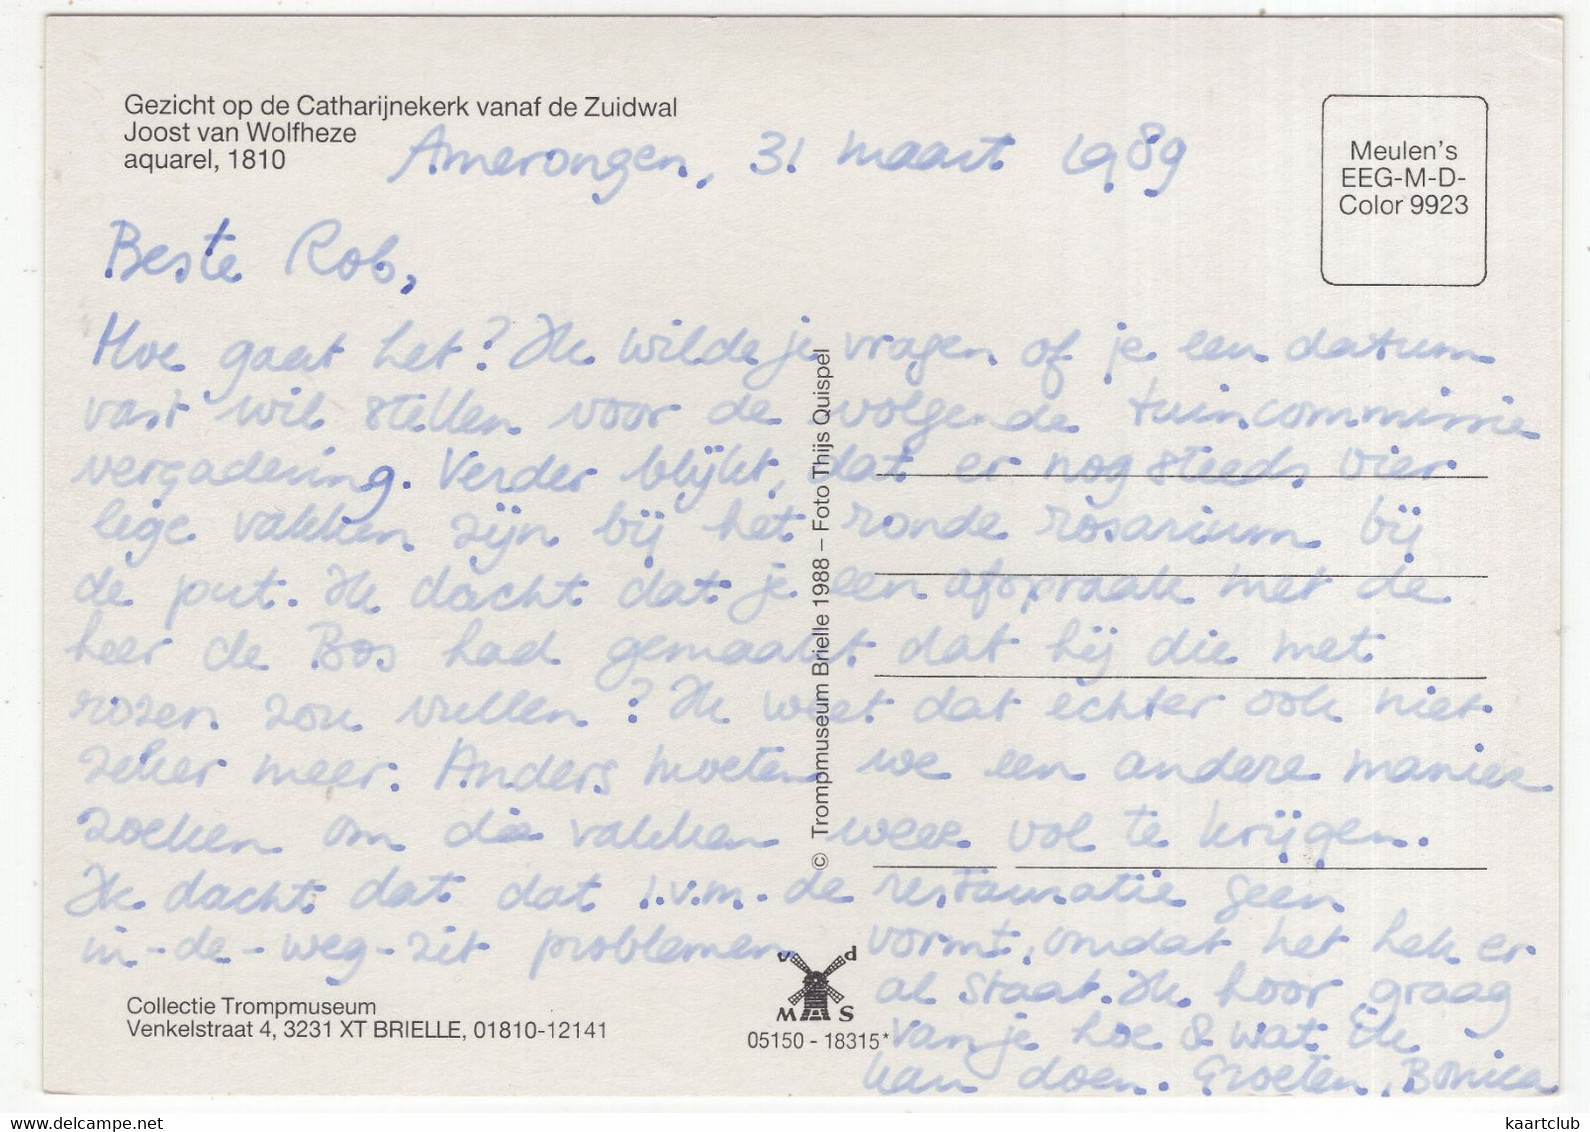 Gezicht op de Catharijnekerk vanaf de Zuidwal
Joost van Wolfheze
aquarel, 1810
Amerongen, 31 maart 1989
Meulen's
EEG-M-D-
Color 9923
Beste Rob,
Hoe gaat het? Ik wilde je vragen of je een datum
vast wil stellen voor de volgende tuincommissie
vergadering. Verder blijkt, dat er nog steeds vier
lege vakken zijn bij het ronde rosarium bij
de put. Ik dacht dat je een afspraak met de
heer de Bos had gemaakt dat hij die met
rozen zou vullen? Ik weet dat echter ook niet
zeker meer. Anders moeten we een andere manier
zoeken om die vakken weer vol te krijgen.
Ik dacht dat dat i.v.m. de restauratie geen
in-de-weg-zit problemen vormt, omdat het hek er
al staat. Ik hoor graag
van je hoe & wat ik
kan doen. Groeten, Bonica
© Trompmuseum Brielle 1988 – Foto Thijs Quispel
Collectie Trompmuseum
Venkelstraat 4, 3231 XT BRIELLE, 01810-12141
v d
M P S
05150 - 18315*
www.delcampe.net
kaartclub